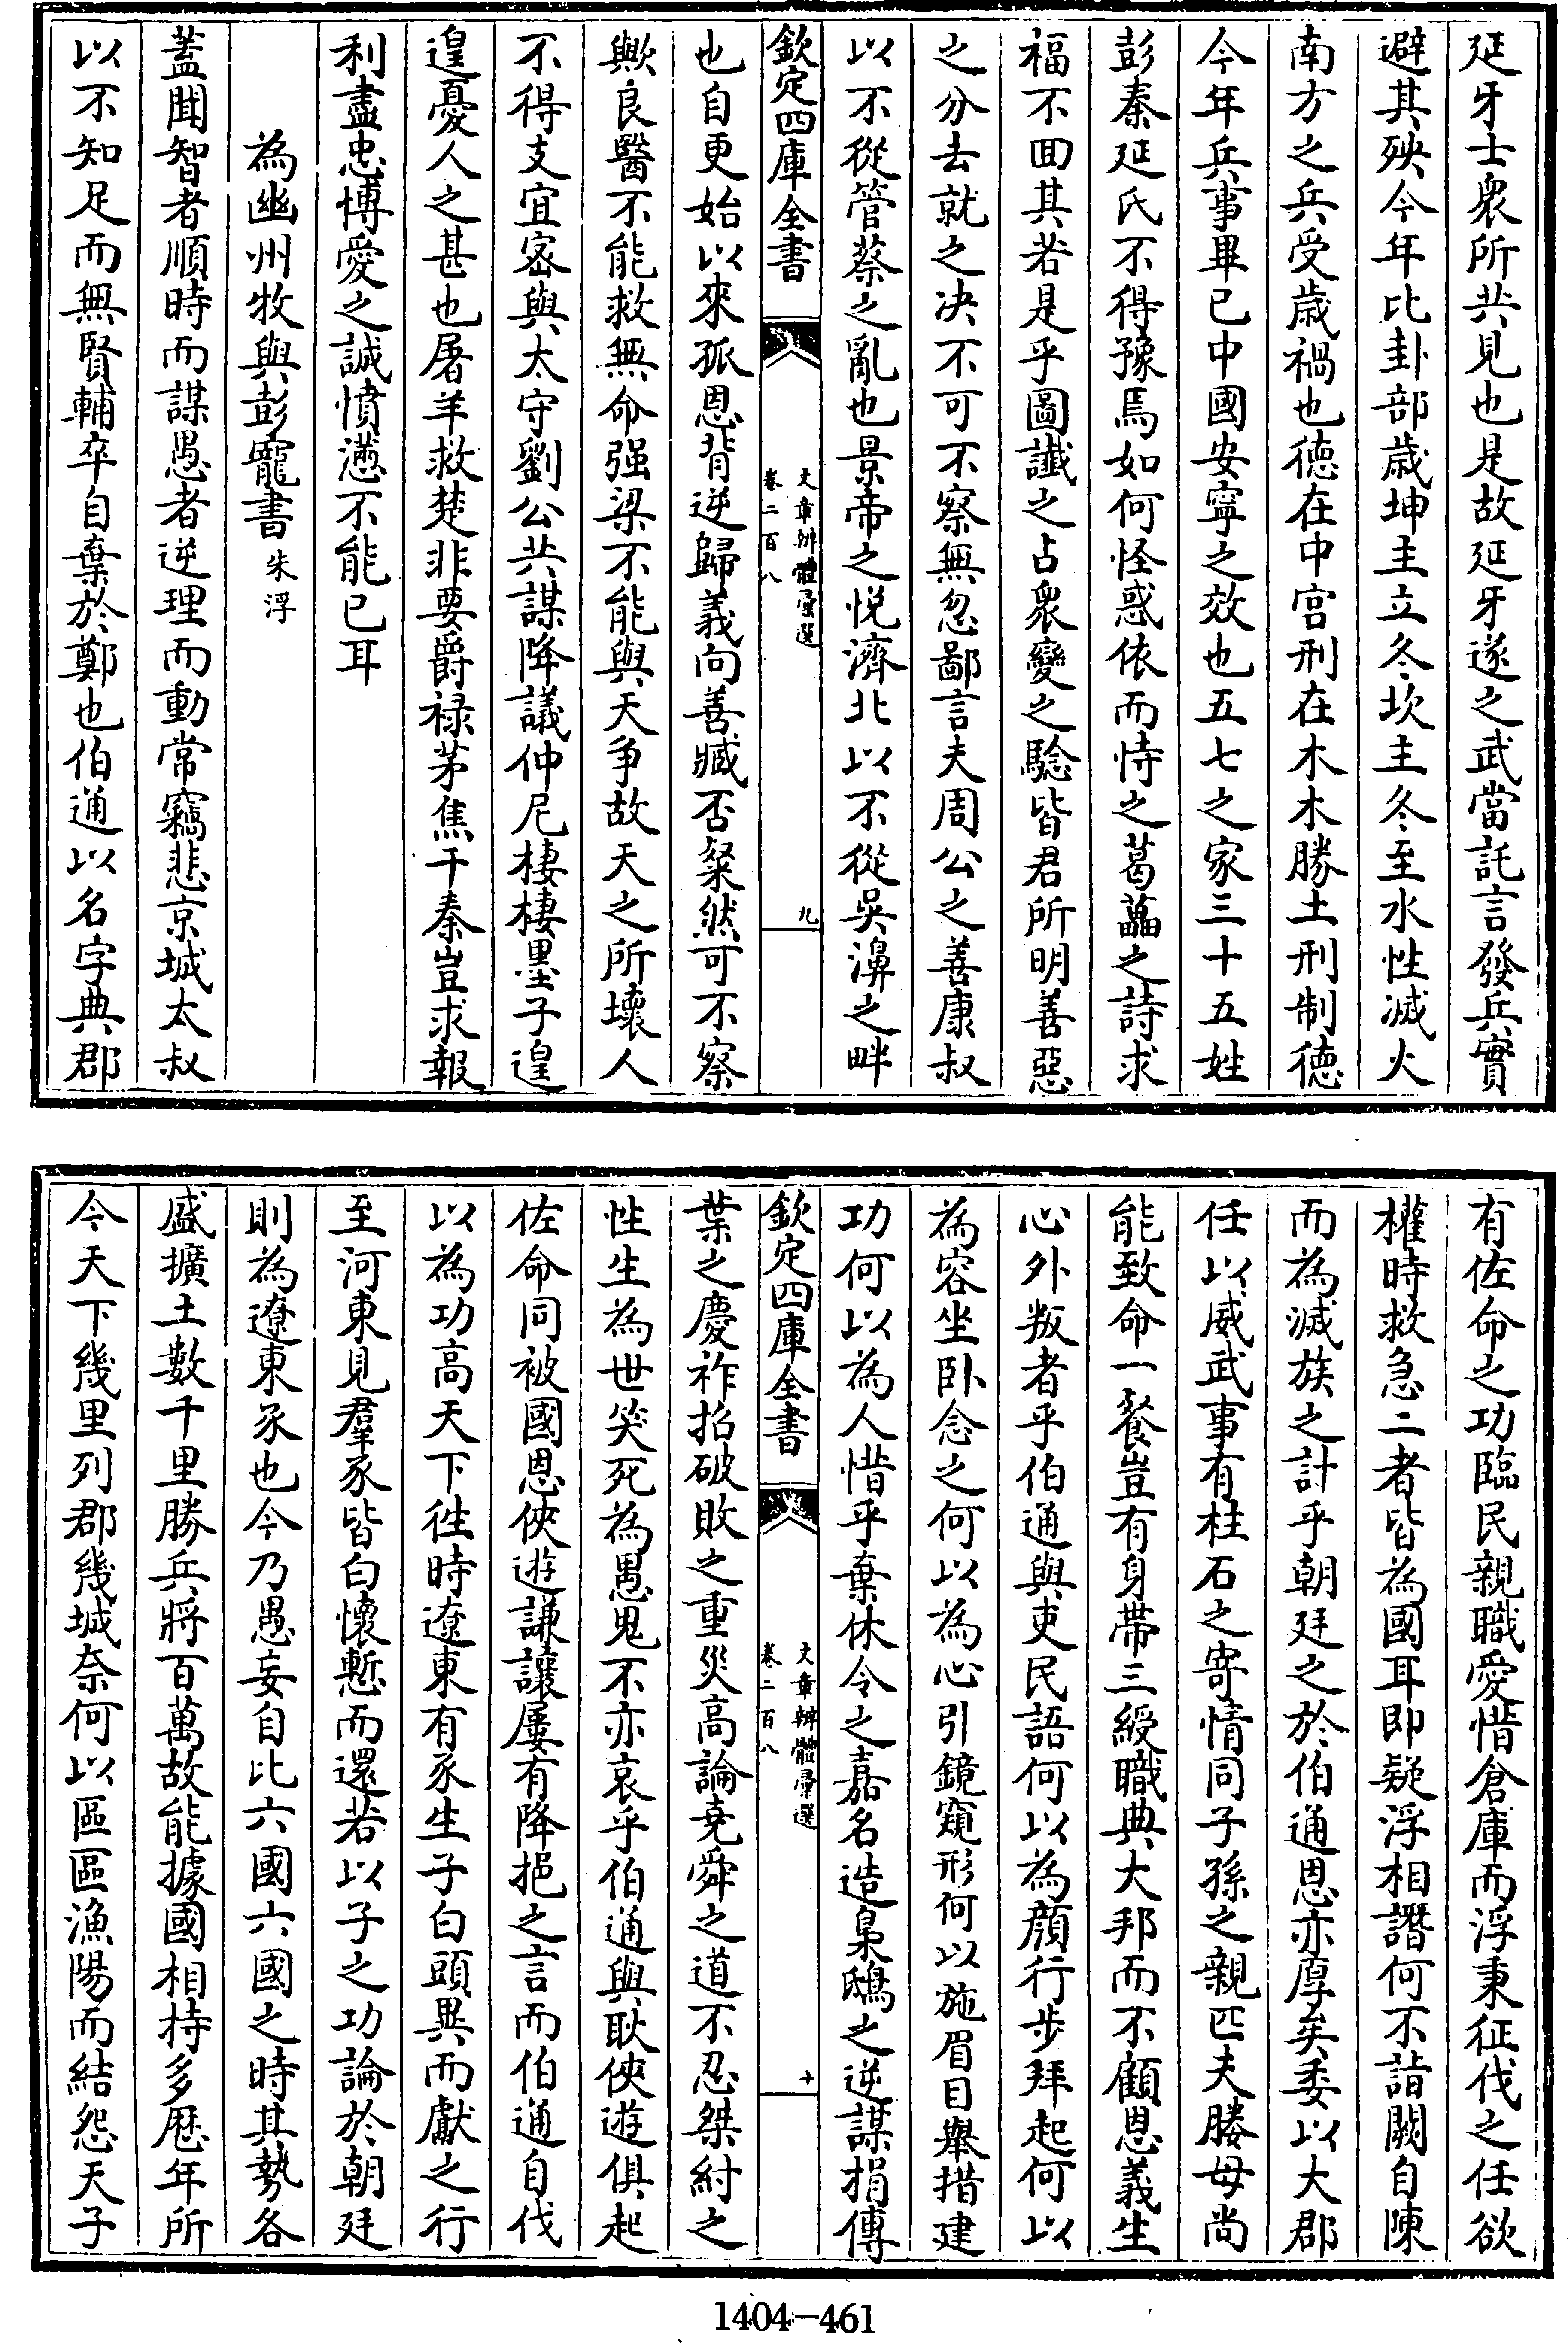 延牙士衆所共見也是故延牙遂之武當託言發兵實
避其殃今年比卦部歳坤主立冬坎主冬至水性滅火
南方之兵受歳禍也徳在中宫刑在木木勝土刑制徳
今年兵事畢已中國安寧之效也五七之家三十五姓
彭秦延氏不得豫焉如何怪惑依而恃之葛藟之詩求
福不回其若是乎圖讖之占衆變之驗皆君所明善惡
之分去就之决不可不察無忽鄙言夫周公之善康叔
以不從管蔡之亂也景帝之悦濟北以不從吳濞之畔
欽定四庫全書
文章辨體彚選
卷二百八
九
也自更始以來孤恩背逆歸義向善臧否粲然可不察
歟良醫不能救無命强梁不能與天争故天之所壞人
不得支宜宻與太守劉公共謀降議仲尼棲棲墨子遑
遑憂人之甚也屠羊救楚非要爵禄茅焦干秦豈求報
利盡忠博愛之誠憤懣不能已耳
為幽州牧與彭寵書 朱浮
蓋聞智者順時而謀愚者逆理而動常竊悲京城太叔
以不知足而無賢輔卒自棄於鄭也伯通以名字典郡
有佐命之功臨民親職愛惜倉庫而浮秉征伐之任欲
權時救急二者皆為國耳即疑浮相譖何不詣闕自陳
而為滅族之計乎朝廷之於伯通恩亦厚矣委以大郡
任以威武事有柱石之寄情同子孫之親匹夫媵母尚
能致命一餐豈有身帶三綬職典大邦而不顧恩義生
心外叛者乎伯通與吏民語何以為顔行步拜起何以
為容坐卧念之何以為心引鏡窺形何以施眉目舉措建
功何以為人惜乎棄休令之嘉名造梟鴟之逆謀捐傳
欽定四庫全書
文章辨體彚選
卷二百八
十
葉之慶祚招破敗之重災高論堯舜之道不忍桀紂之
性生為世笑死為愚鬼不亦哀乎伯通與耿俠遊俱起
佐命同被國恩俠遊謙讓屢有降挹之言而伯通自伐
以為功高天下徃時遼東有豕生子白頭異而獻之行
至河東見羣豕皆白懷慙而還若以子之功論於朝廷
則為遼東豕也今乃愚妄自比六國六國之時其勢各
盛擴土數千里勝兵將百萬故能據國相持多歴年所
今天下幾里列郡幾城奈何以區區漁陽而結怨天子
1404-461